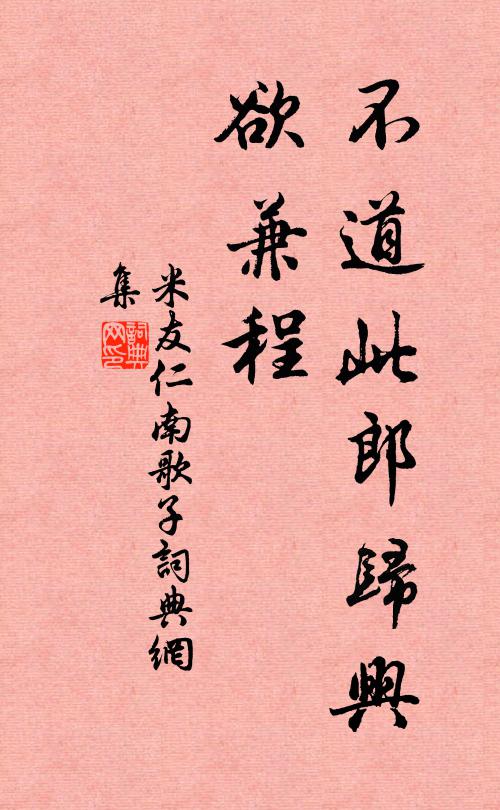 不道此郎歸興
欲兼程
米友仁南歌子詞典網
集
詞典
网印